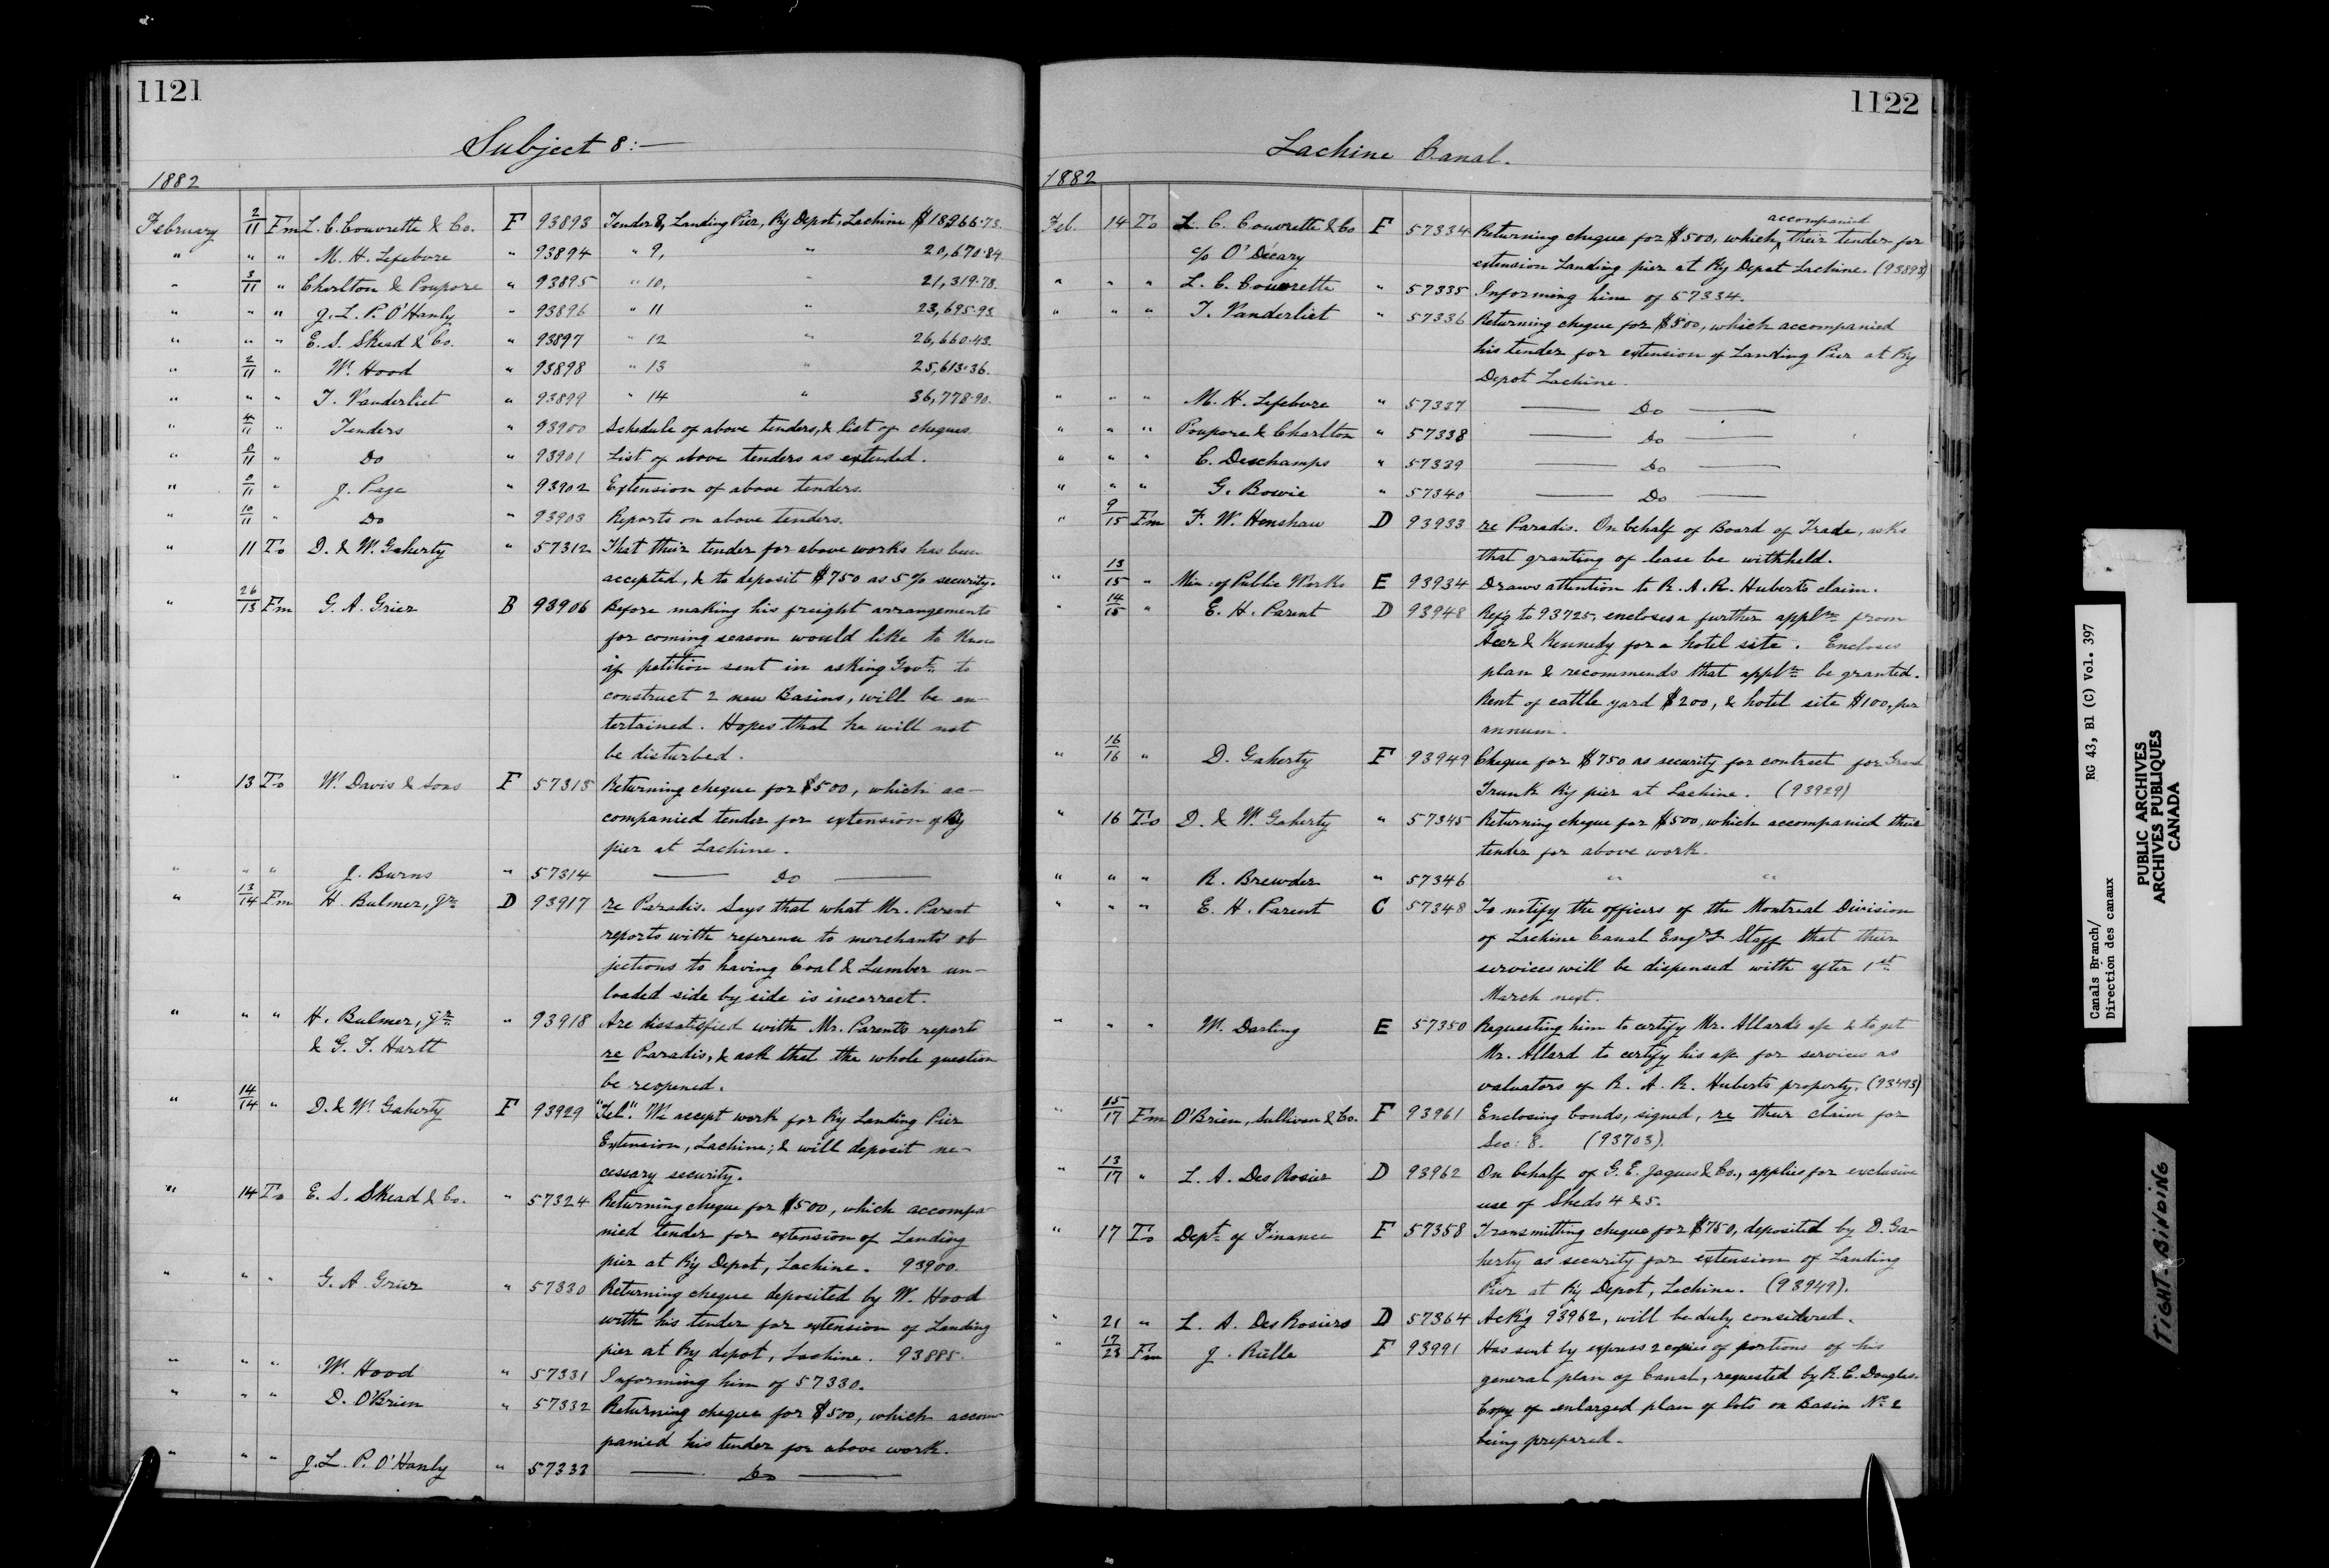 1121
Subject 8:—
1882
February 2/11 Fm L. C. Couvrette & Co. F 93893 Tender 8, Landing Pier, Ry Depot, Lachine $18966.73.
" " " M. H. Lefebvre " 93894 " 9, " 20,670.84
" 3/11 " Charlton & Poupore " 93895 " 10, " 21,319.78.
" " " J. L. P. O'Hanly " 93896 " 11 " 23,695.93
" " " E. S. Skead & Co. " 93897 " 12 " 26,660.43.
" 2/11 " W. Hood " 93898 " 13 " 25,613.36.
" " " T. Vanderliet " 93899 " 14 " 36,778.90.
" 4/11 " Tenders " 93900 Schedule of above tenders, & list of cheques
" 8/11 " Do " 93901 List of above tenders as extended.
" 8/11 " J. Page " 93902 Extension of above tenders.
" 10/11 " Do " 93903 Reports on above tenders.
" 11 To D. & W. Gaherty " 57312 That their tender for above works has been
accepted, & to deposit $750 as 5% security.
" 26/13 Fm G. A. Grier B 93906 Before making his freight arrangements
for coming season would like to know
if petition sent in asking Govt. to
construct 2 new Basins, will be en-
tertained. Hopes that he will not
be disturbed.
" 13 To W. Davis & Sons F 57313 Returning cheque for $500, which ac-
companied tender for extension of Ry
pier at Lachine.
" " " J. Burns " 57314 —— Do ——
" 13/14 Fm H. Bulmer, Jr. D 93917 re Paradis. Says that what Mr. Parent
reports with reference to merchants' ob
jections to having Coal & Lumber un-
loaded side by side is incorrect.
" " " H. Bulmer, Jr. " 93918 Are dissatisfied with Mr. Parents report
& G. F. Hartt re Paradis, & ask that the whole question
be reopened.
" 14/14 " D. & W. Gaherty F 93929 "Tel". We accept work for Ry Landing Pier
Extension, Lachine; & will deposit ne-
cessary security.
" 14 To E. S. Skead & Co. " 57324 Returning cheque for $500, which accompa-
nied tender for extension of Landing
pier at Ry Depot, Lachine. 93900.
" " " G. A. Grier " 57330 Returning cheque deposited by W. Hood
with his tender for extension of Landing
pier at Ry depot, Lachine. 93885.
" " " W. Hood " 57331 Informing him of 57330.
" " " D. O'Brien " 57332 Returning cheque for $500, which accom-
panied his tender for above work.
" " " J. L. P. O'Hanly " 57333 —— Do ——
1122
Lachine Canal.
1882
accompanied
Feb. 14 To L. C. Couvrette & Co F 57334 Returning cheque for $500, which ^ their tender for
c/o O' Décary extension Landing pier at Ry Depot Lachine. (93893)
" " " L. C. Couvrette " 57335 Informing him of 57334.
" " " T. Vanderliet " 57336 Returning cheque for $500, which accompanied
his tender for extension of Landing Pier at Ry
Depot Lachine.
" " " M. H. Lefebvre " 57337 —— Do ——
" " " Poupore & Charlton " 57338 —— Do ——
" " " C. Deschamps " 57339 —— Do ——
" " " G. Bowie " 57340 —— Do ——
" 9/15 Fm F. W. Henshaw D 93933 re Paradis. On behalf of Board of Trade, asks
that granting of lease be withheld.
" 13/15 " Min: of Public Works E 93934 Draws attention to R. A. R. Huberts claim.
" 14/15 " E. H. Parent D 93948 Ref'g to 93725, encloses a further appln. from
Acer & Kennedy for a hotel site. Encloses
plan & recommends that appln. be granted.
Rent of cattle yard $200, & hotel site $100, per
annum.
" 16/16 " D. Gaherty F 93949 Cheque for $750 as security for contract for Grand
Trunk Ry pier at Lachine. (93929)
" 16 To D. & W. Gaherty " 57345 Returning cheque for $500, which accompanied their
tender for above work.
" " " R. Brewder " 57346 " "
" " " E. H. Parent C 57348 To notify the officers of the Montreal Division
of Lachine Canal Eng'g Staff that their
services will be dispensed with after 1st
March next.
" " " W. Darling E 57350 Requesting him to certify Mr. Allards a/c & to get
Mr. Allard to certify his a/c for services as
valuators of R. A. R. Huberts property. (93493)
" 15/17 Fm O'Brien, Sullivan & Co. F 93961 Enclosing bonds, signed, re their claim for
Sec: 8. (93703).
" 13/17 " L. A. Des Rosier D 93962 On behalf of G. E. Jaques & Co., applies for exclusive
use of Sheds 4 & 5.
" 17 To Dept. of Finance F 57358 Transmitting cheque for $750, deposited by D. Ga-
herty as security for extension of Landing
Pier at Ry Depot, Lachine. (93949).
" 21 " L. A. Des Rosiers D 57364 Ack'g 93962, will be duly considered.
" 17/23 Fm J. Rielle F 93991 Has sent by express 2 copies of portions of his
general plan of Canal, requested by R. C. Douglas.
Copy of enlarged plan of lots on Basin No. 2
being prepared.
Canals Branch/ RG 43, B1 (C) Vol. 397
Direction des canaux
PUBLIC ARCHIVES
ARCHIVES PUBLIQUES
CANADA
TIGHT-BINDING